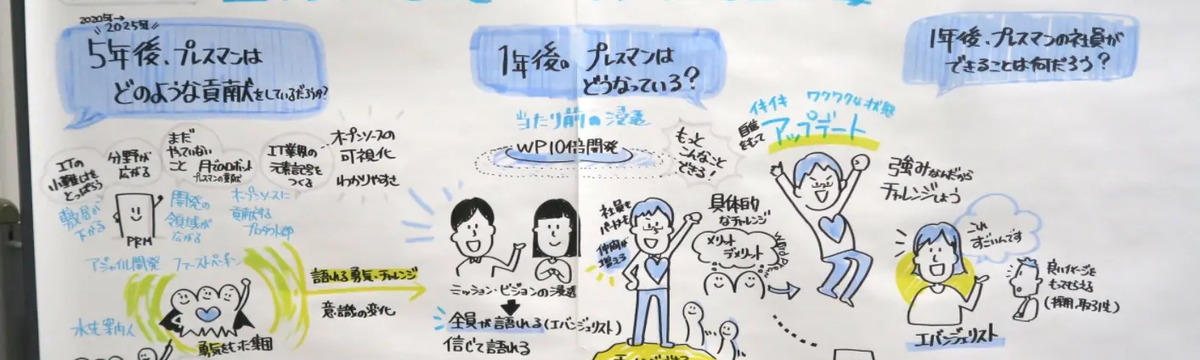 2020年→
2025年
5年後、プレスマンは
どのような貢献をしているだろうか?
ITの
小難しさを
とっぱらう
分野が
広がる
まだ
やっていない
こと
月でロボット
IT業界の
元素記号を
つくる
オープンソースの
可視化
わかりやすさ
敷居が
下がる
PRM
開発の
領域が
広がる
オープンソースに
貢献する
アジャイル開発 ファーストペンギン
水先案内人
勇気をもった集団
語れる勇気・チャレンジ
意識の変化
1年後。プレスマンは
どうなっている?
当たり前の浸透
WP10倍開発
もっと
こんなこと
できる!
ミッション・ビジョンの浸透
全員が語れる(エバンジェリスト)
信じて語れる
社員も
パートナーも
仲間が
増える
具体的
なチャレンジ
メリット
デメリット
イキイキ ワクワクな状態
自信
をもって
アップデート
1年後、プレスマンの社員が
できることは何だろう?
強みなんだから
チャレンジしよう
これ
すごいんです
良いイメージを
もってもらえる
(採用、取引先)
エバンジェリスト